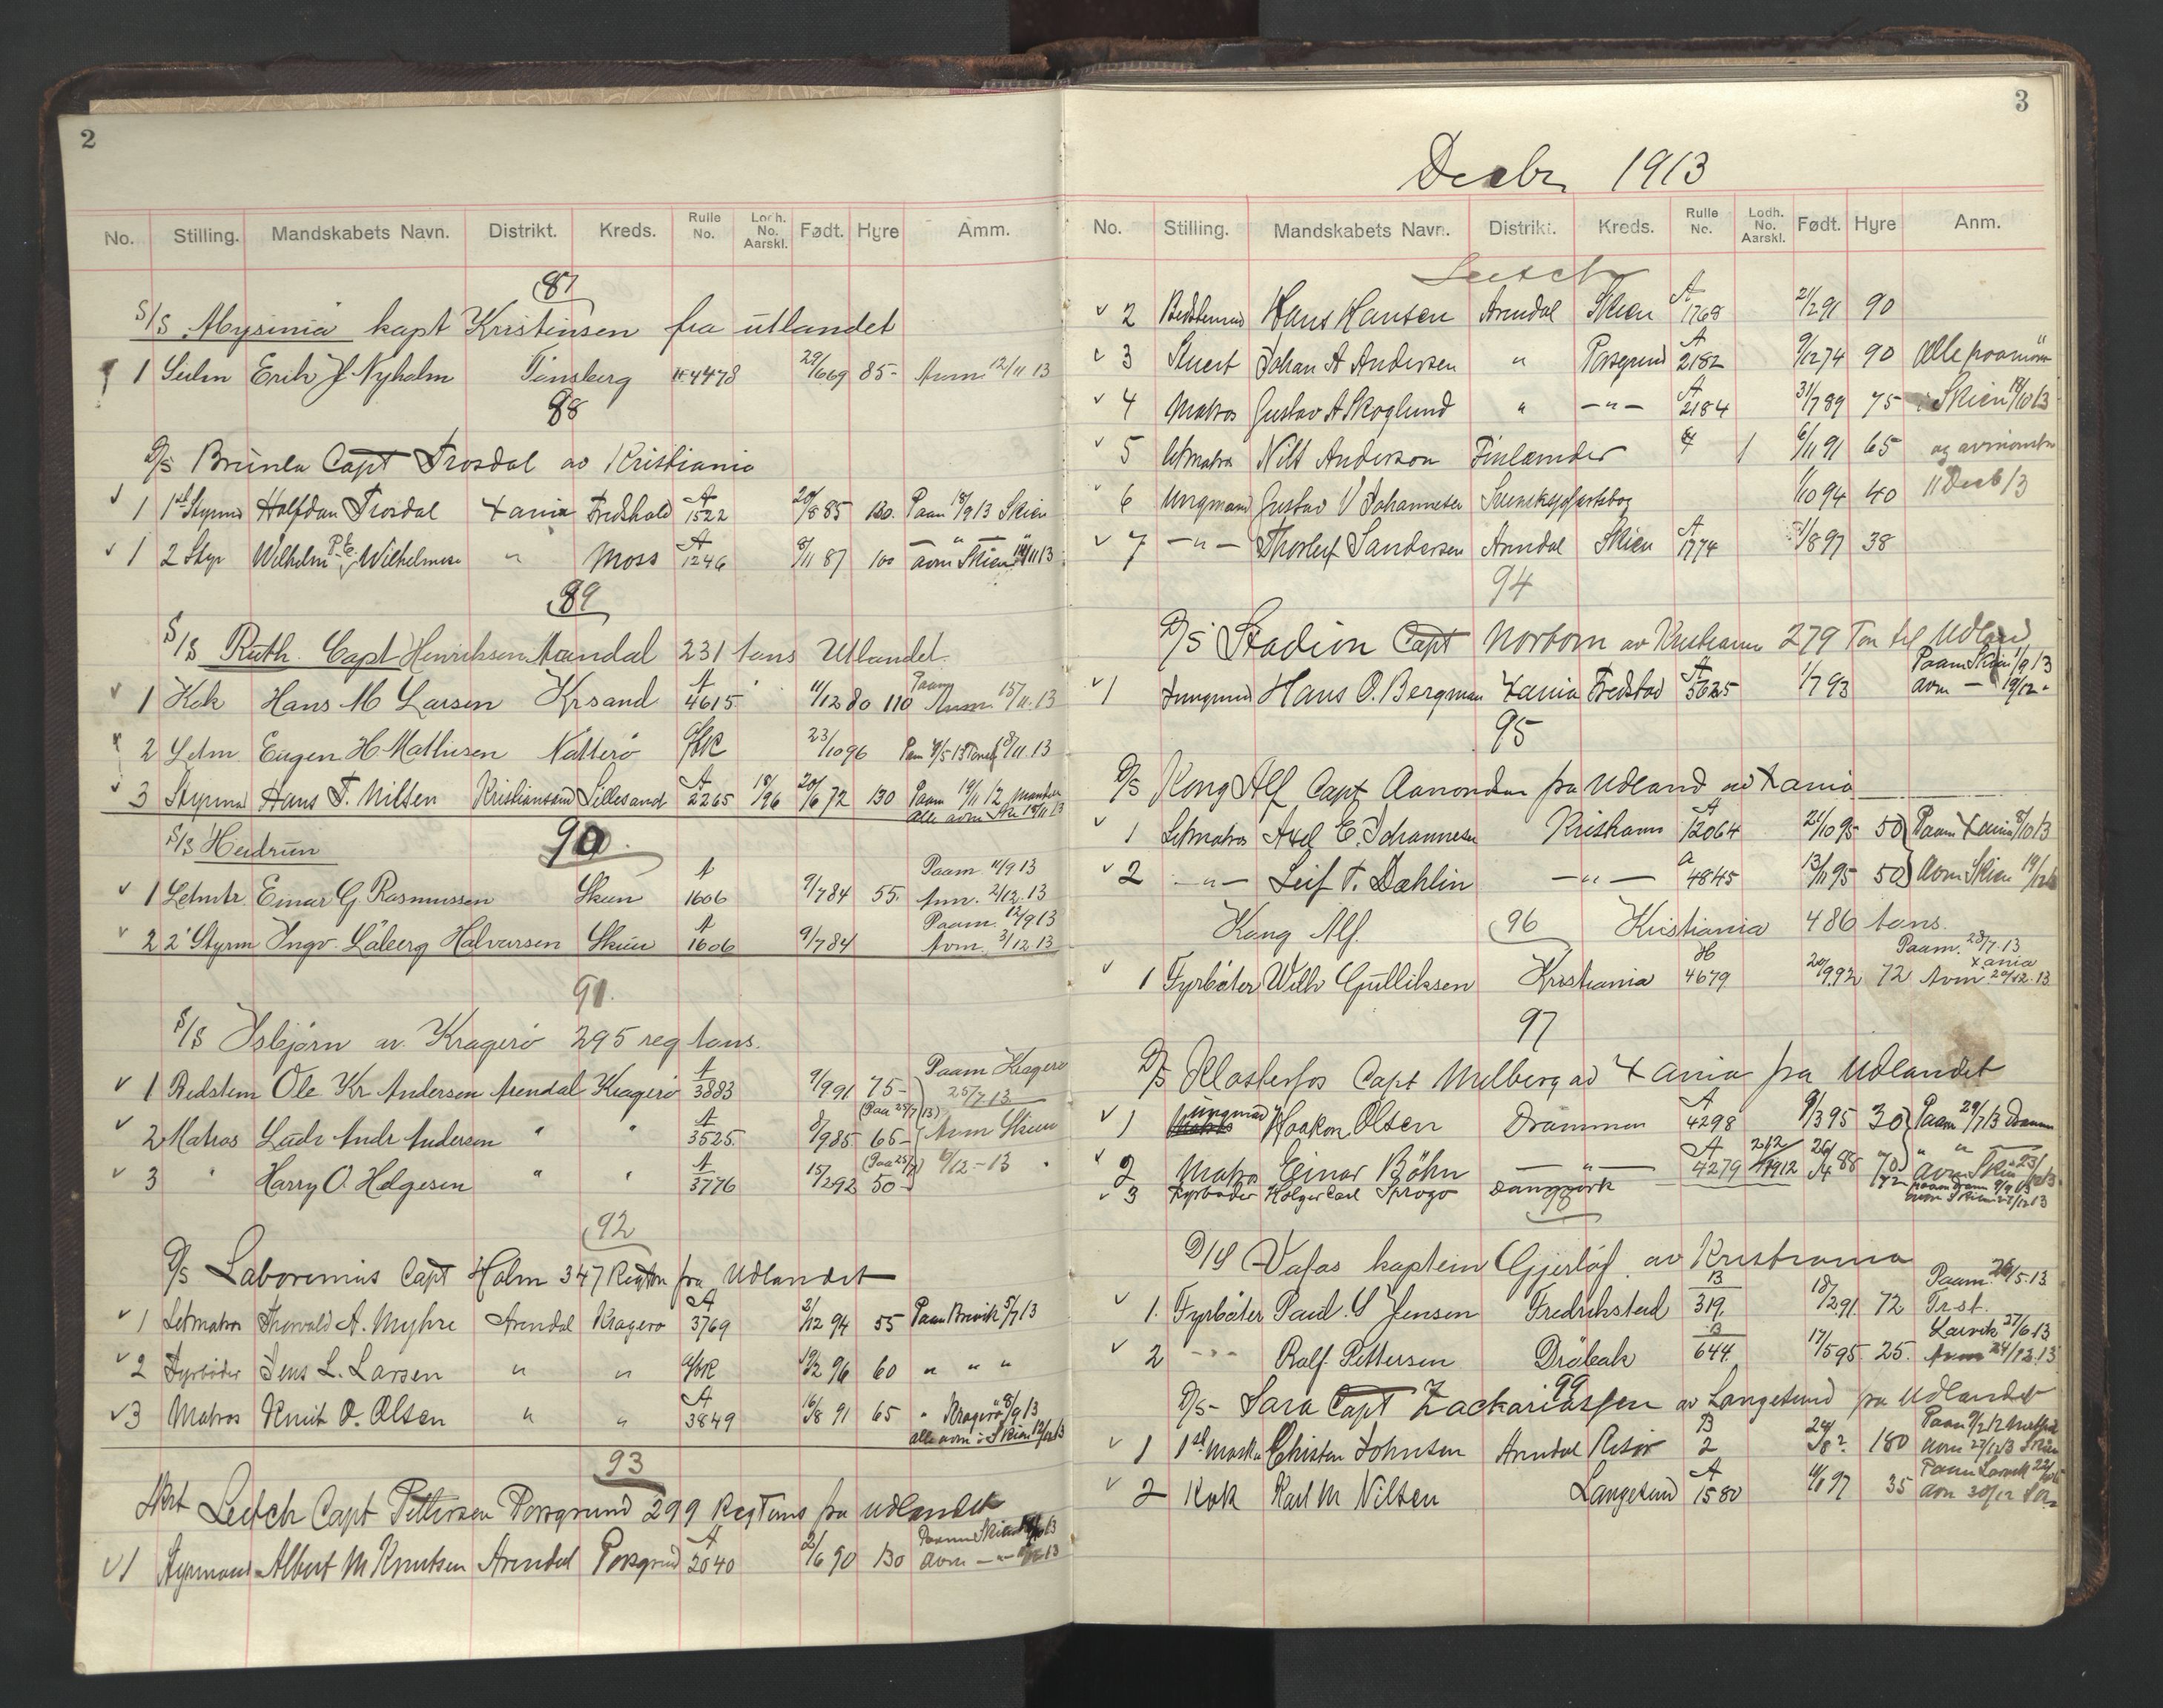 2
No. Stilling. Mandskabets Navn. Distrikt. Kreds. Rulle No. Lodh. No. Aarskl. Født. Hyre Amm.
87
S/S Abysinia kapt Kristinsen fra utlandet
1 Erik J. Nyholm Tønsberg 4478 29/6 69 85- 12/11 13
88
D/S Brunla Capt Trosdal av Kristiania
1 1st Styrm Halfdan Trosdal Xania Fredshald A 1522 20/8 85 130. Paam 18/9 13 Skien
1 2 Styr Wilhelm Wilhelmsen " Moss A 1246 8/11 87 100 avm Skien 11 13
89
S/S Ruth. Capt Henriksen Mandal 231 tons Utlandet.
1 Kok Hans M Larsen Krsand A 4615 11/12 80 110 Paam 15/11.13
2 Letm. Eugen H. Mathisen Nøtterö 23/10 96 13
3 Styrm Hans T. Nilsen Kristiansand Lillesand A 2265 18/96 20/6 72 130 Paam 19/11 12
alle avm
S/S Heidrun 90
1 Letmtr. Einar G. Rasmussen Skien A 1606 9/7 84 55. Paam. 11/9 13 Avm. 2/12.13
2 2' Styrm Ingv. Halvorsen Skien A 1606 9/7 84 Paam 12/9 13 Avm. 3/12.13
91.
S/S Isbjörn av. Kragerö 295 reg tons.
1 Bedstem Ole Kr Andersen Arendal Kragerö A 3883 9/9 91 75- Paam Kragerö 25/7 13
2 Matros Ludv Andr Andersen " " A 3525. 8/9 85 65- (Paa 25/7 13) Avm Skien
3 " Harry O. Helgesen " " A 3776 15/2 92 50- (Paa 25/7) 6/12-13
92
D/S Laboremus Capt Holm 347 Regton fra Udlandet
1 Letmatros Thorvald A. Myhre Arendal Kragerø A 3769 2/12 94 55 Paam Brevik 5/7 13
2 Fyrbøder Jens L. Larsen " " 19/2 96 60 " " "
3 Matros Knut O. Olsen " " A 3849 16/8 91 65 " Kragerø 8/9 13
alle avm i Skien 12/12 13
93
Skrt Leitch Capt Pettersen Porsgrund 299 Regtons fra udlandet
1 Styrmand Albert M Knutsen Arendal Porsgrund A 2040 2/6 90 130 Paam Skien 13
avm 13
3
Desbr 1913
No. Stilling. Mandskabets Navn. Distrikt. Kreds. Rulle No. Lodh. No. Aarskl. Født. Hyre Anm.
Leitch
2 Bedstemand Hans Hansen Arendal Skien A 1768 21/2 91 90
3 Stuert Johan A Andersen " Porsgrund A 2182 9/12 74 90 Alle paamön
4 Matros Gustav A Skoglund " -"- A 2184 31/7 89 75 i Skien 18/10 13
5 Letmatros Nils Anderson Finlænder 6/11 91 65 og avmönstr
6 Ungmand Gustav V Johannesen Svensk 1/10 94 40 11 Desb 13
7 -"- Thorleif Sandersen Arendal Skien A 1774 /8 97 38
94
D/S Stadion Capt Norbom av Kristiania 279 Ton til Udland
1 Jungmand Hans O. Bergman Xania Fredstad A 5625 1/7 93 Paam Skien 1/9 13
avm - 19/12 -
95
D/S Kong Alf Capt Aanondsen fra Udland av Xania
1 Letmatros Axel E. Johannesen Kristiania A 12064 21/10 95 50 Paam Xania 8/10 13
2 -"- Leif T. Dahlin -"- a 4845 13/11 95 50 Avm Skien 19/12
Kong Alf. 96 Kristiania 486 tons.
1 Fyrböter Wilh Gulliksen Kristiania H 4679 20/9 92 72 Paam. 28/7.13 Xania Avm 20/12.13
97
D/S Klosterfos Capt Melberg av Xania fra Udlandet
1 ungmand Haakon Olsen Drammen A 4298 9/3 95 30 Paam 29/7 13 Dramm
2 Matros Einar Böhn -"- A 4279 212/1912 26/4 88 70 " "
avm Skien 23/12 13
3 Fyrbøder Holger Carl Sprogø Danmark 72 paam Dramm 9/9 13
avm Skien 13
98
D/S Vafos kaptein Gjerløf. av Kristiania
1. Fyrböter Paul. S Jensen Fredrikstad B 319. 18/2 91. 72 Paam. 26/5.13 Trst.
2 -"- Ralf Pettersen Dröbak B 644. 17/5 95. 25. Larvik 27/6 13 Avm 24/12.13
99
D/S- Sara Capt Zachariassen av Langesund fra Udlandet
1 1st Mask Christen Johnsen Arendal Risör B 2 180
avm 27/12 13 Skien
2 Kok Karl M Nilsen Langesund A 1580 97 35 Paam Larvik 22/
avm 30/12